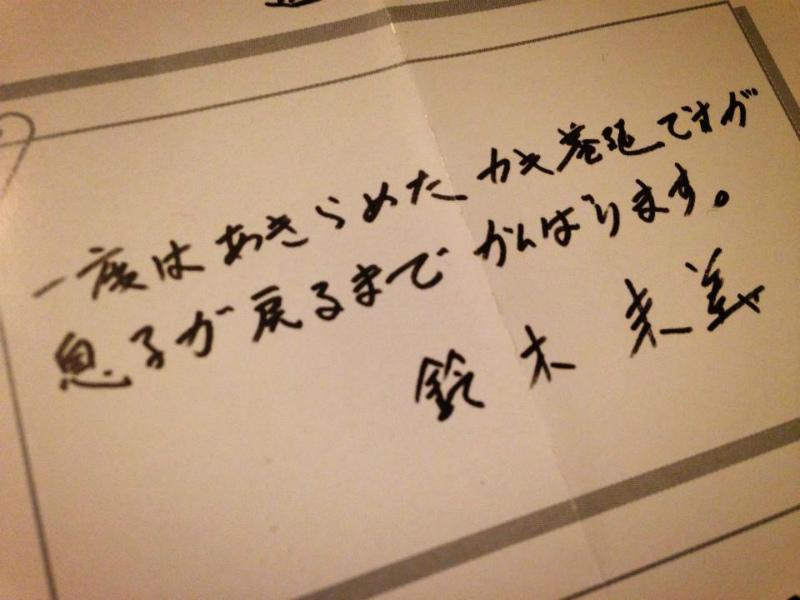 一度はあきらめた カキ養殖ですが
息子が戻るまで がんばります。
鈴木